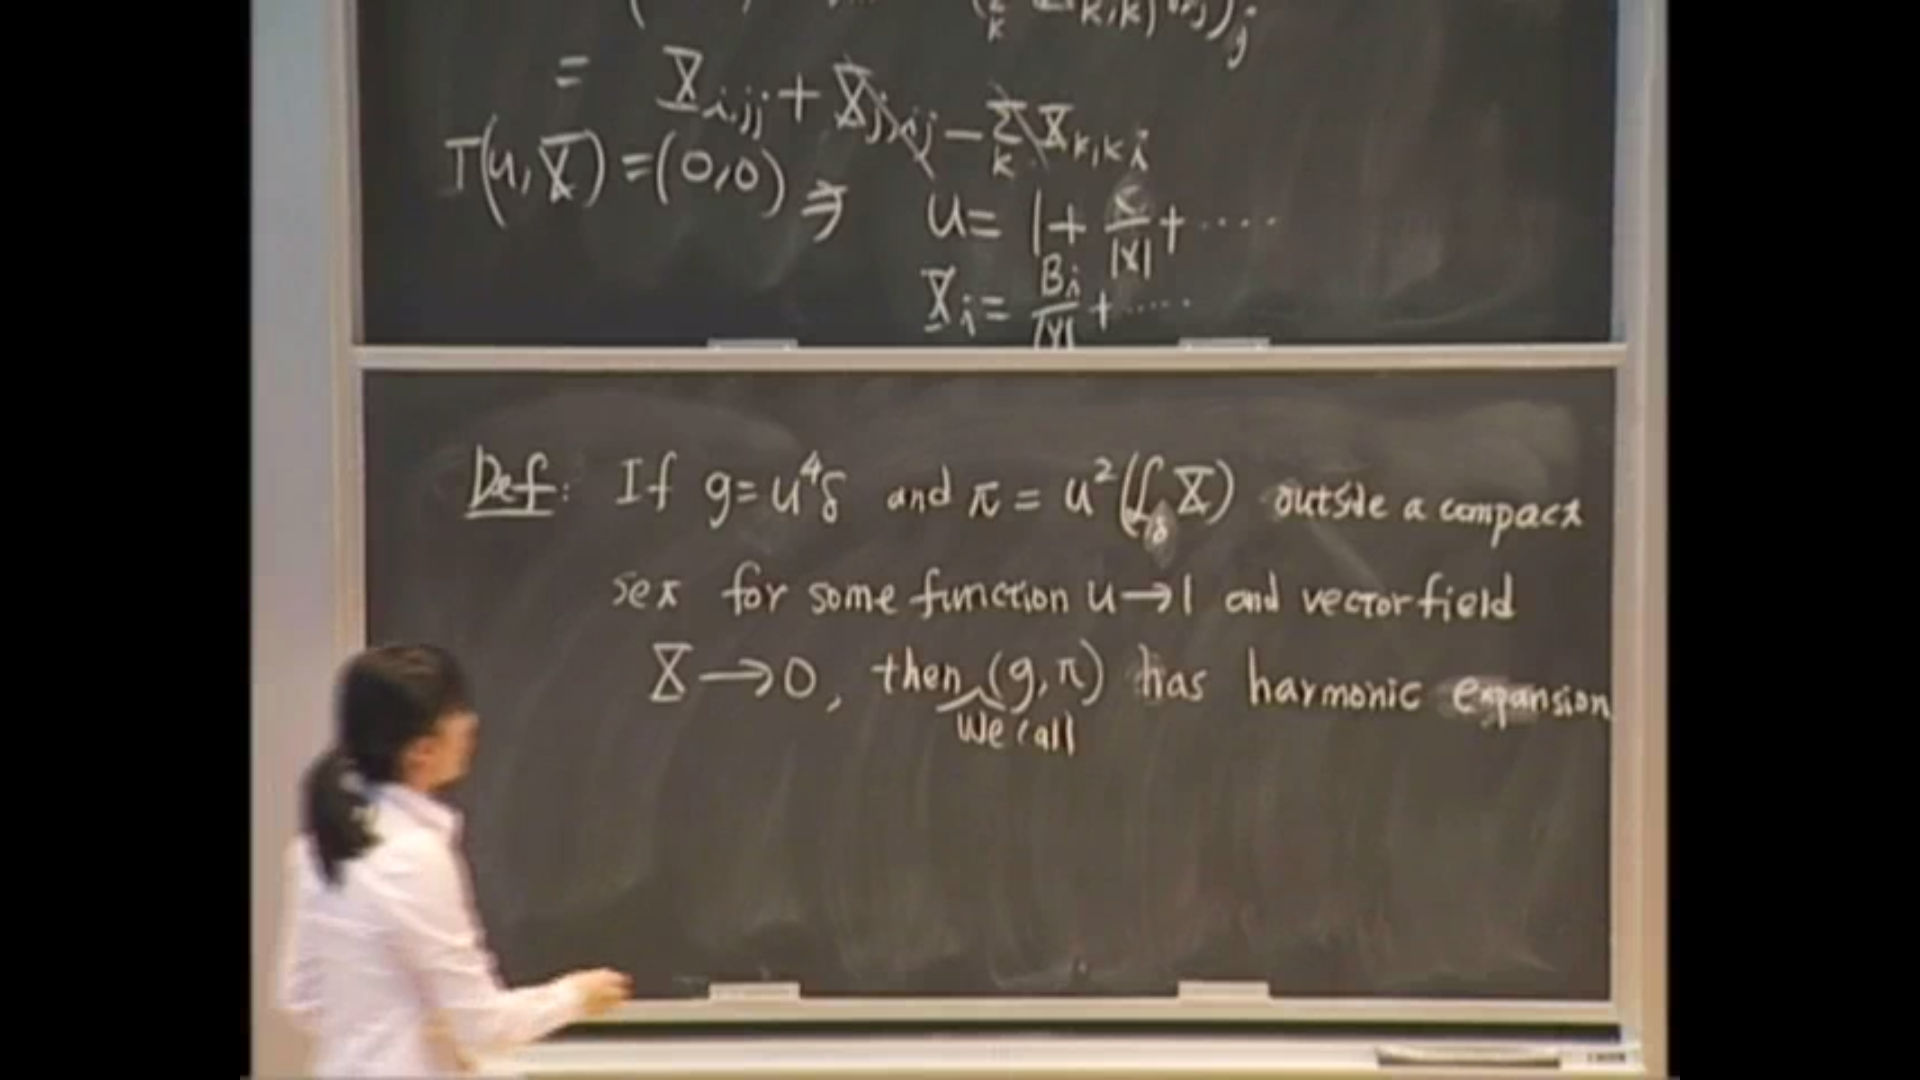 = X_{i,jj} + X_{j,ij} - Σ_k X_{k,ki}
T(u,X) = (0,0) ⇒ u = 1 + c/|x| + ....
X_i = B_i/|x| + .....
Def: If g = u⁴δ and π = u²(𝓛_δ X) outside a compact
set for some function u → 1 and vector field
X → 0, then (g, π) has harmonic expansion
we call